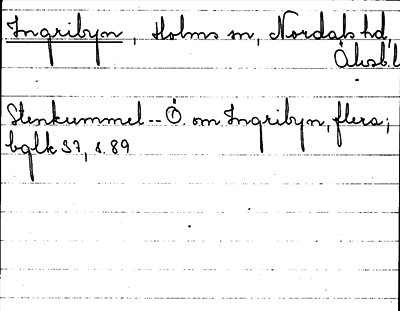 Ingribyn, Holms sn, Nordals hd,
Älvsb.l
Stenkummel -- Ö. om Ingribyn, flera;
bglk S7, s. 89